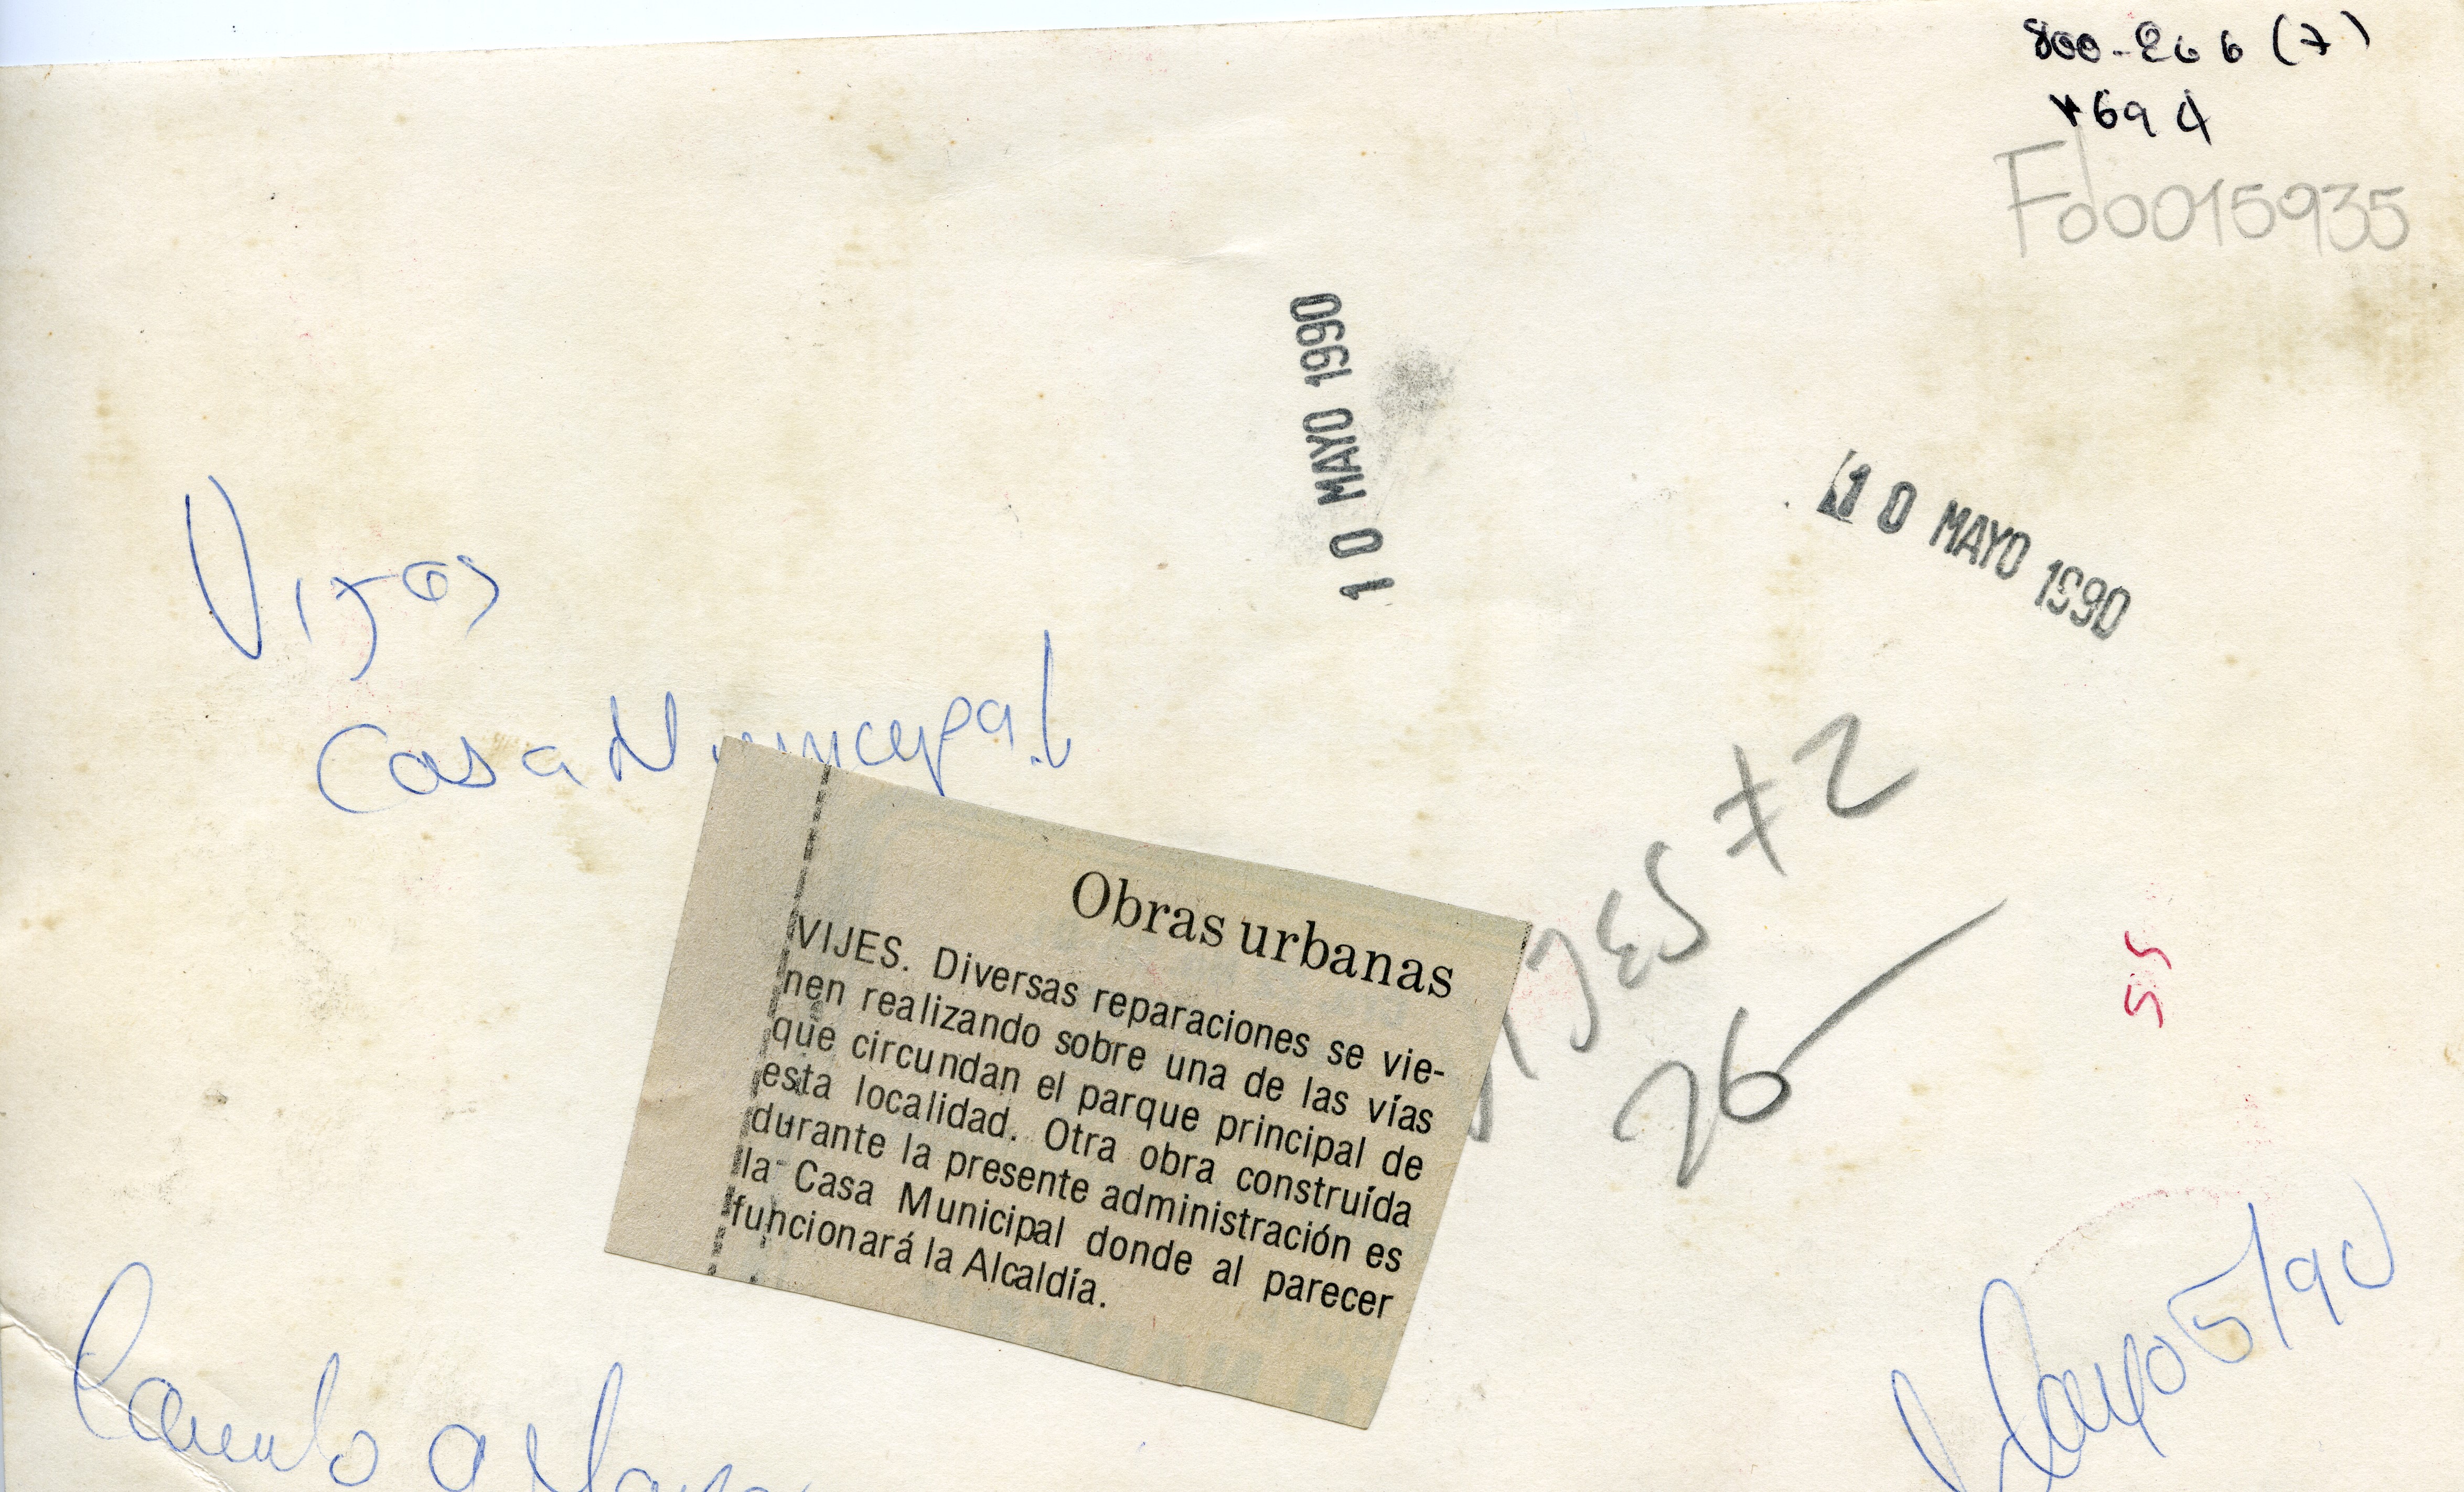 800-266 (7)
Fdo015935
10 MAYO 1990
10 MAYO 1990
Vijes
Casa Municipal
Obras urbanas
VIJES. Diversas reparaciones se vie-
nen realizando sobre una de las vías
que circundan el parque principal de
esta localidad. Otra obra construída
durante la presente administración es
la Casa Municipal donde al parecer
funcionará la Alcaldía.
26
55
Mayo 5/90